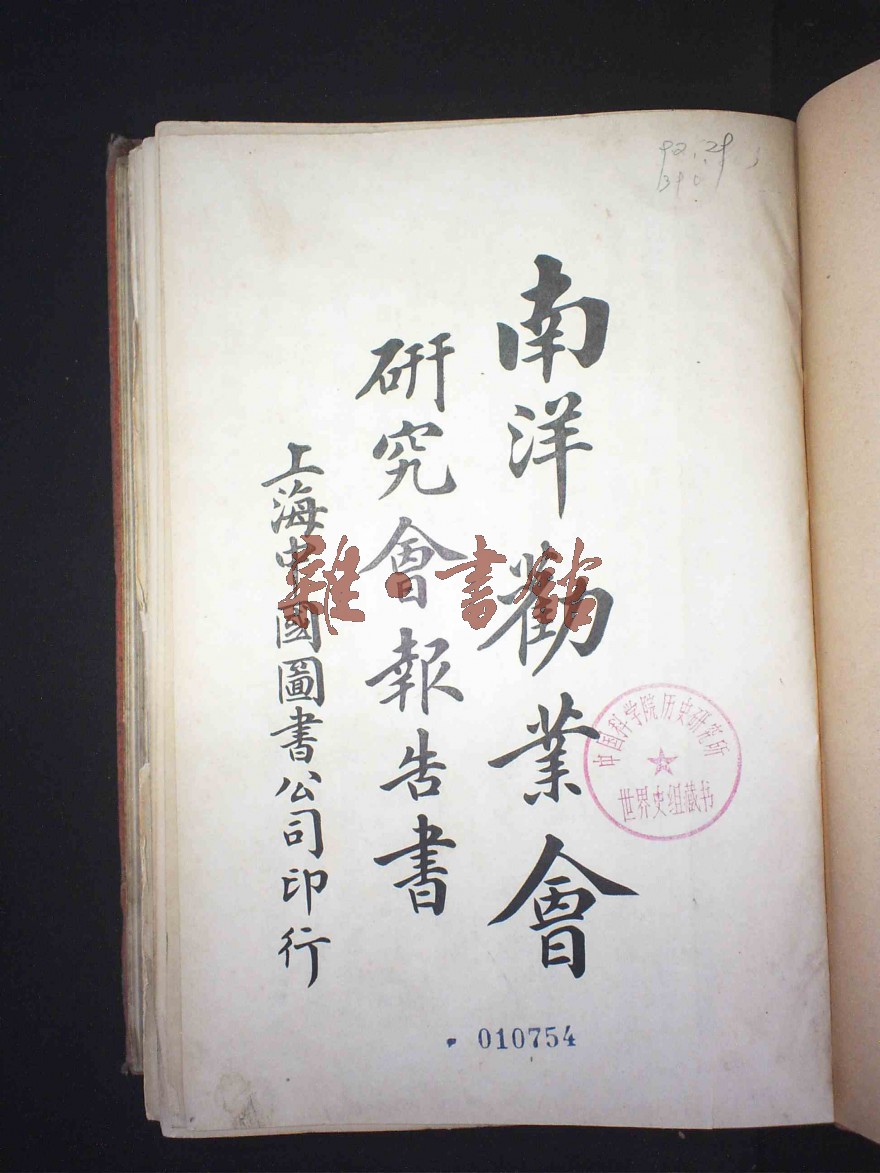 南洋勸業會
研究會報告書
上海中國圖書公司印行
中国科学院历史研究所
世界史组藏书
010754
雜·書館